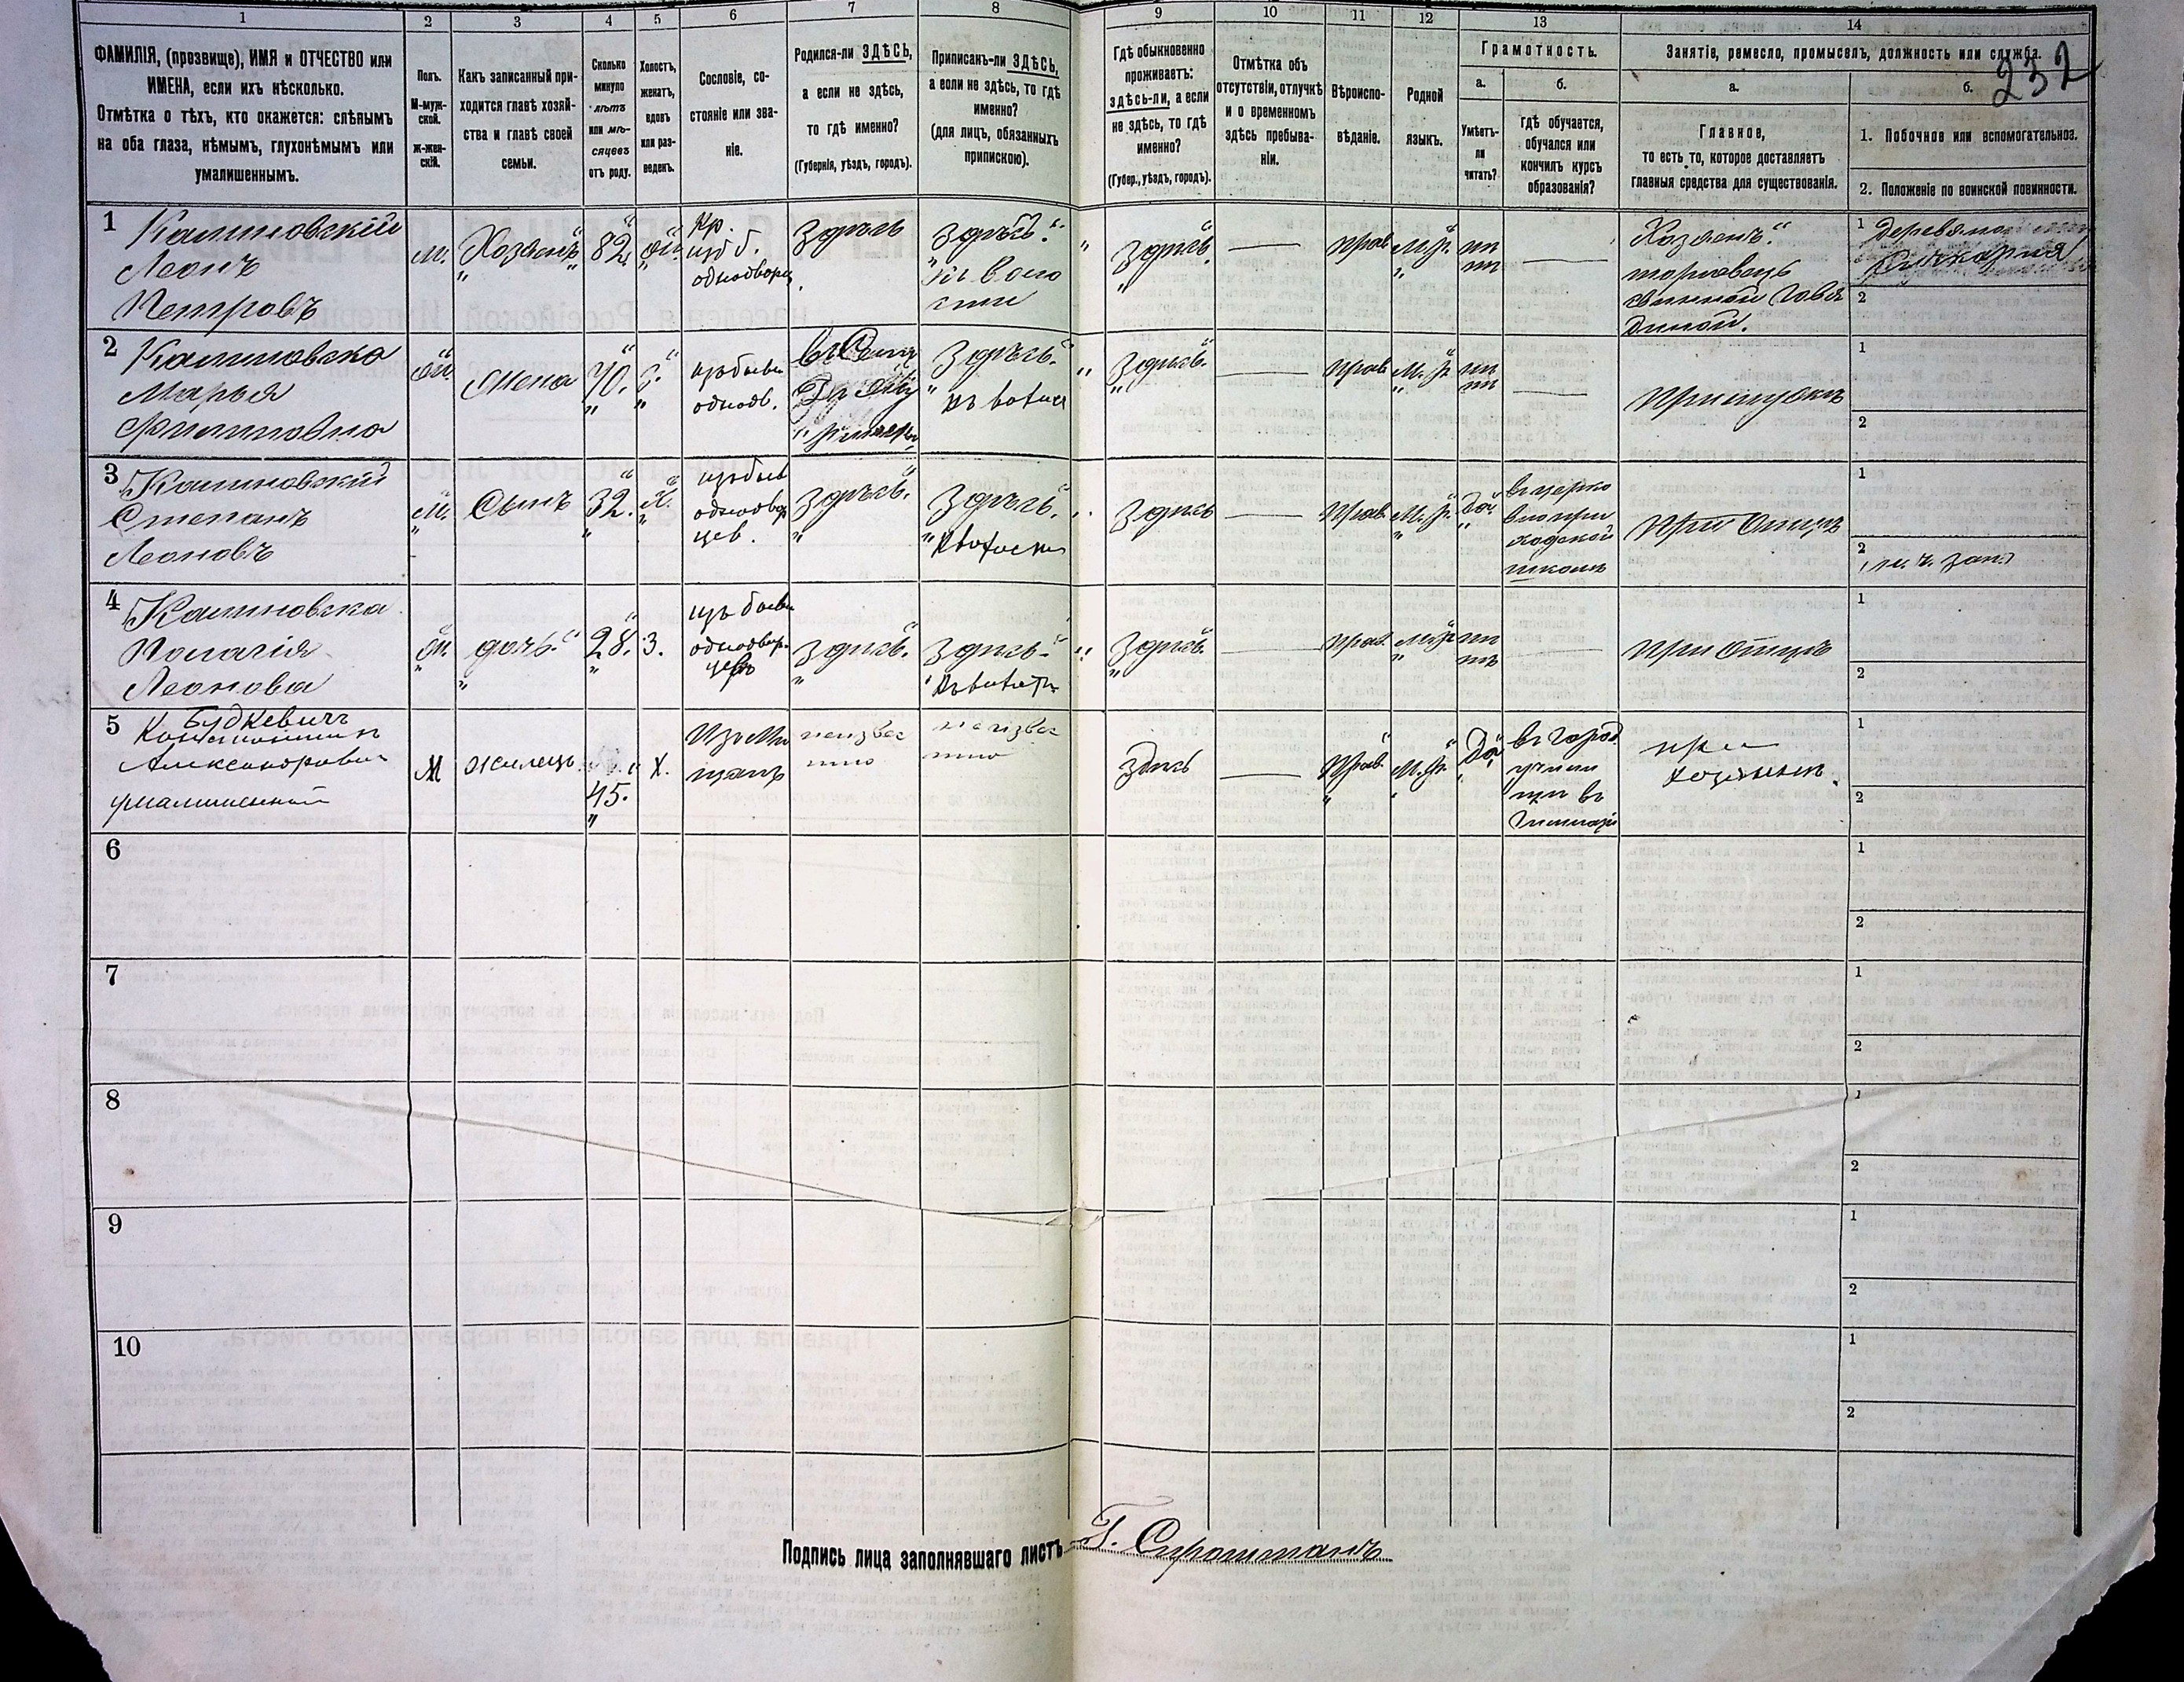 1 2 3 4 5 6 7 8 9 10 11 12 13 14
232
ФАМИЛІЯ, (прозвище), ИМЯ и ОТЧЕСТВО или
ИМЕНА, если ихъ нѣсколько.
Отмѣтка о тѣхъ, кто окажется: слѣпымъ
на оба глаза, нѣмымъ, глухонѣмымъ или
умалишеннымъ.
Полъ.
М-муж-
ской.
ж-жен-
скій.
Какъ записанный при-
ходится главѣ хозяй-
ства и главѣ своей
семьи.
Сколько
минуло
лѣтъ
или мѣ-
сяцевъ
отъ роду.
Холостъ,
женатъ,
вдовъ
или раз-
веденъ.
Сословіе, со-
стояніе или зва-
ніе.
Родился-ли ЗДѢСЬ,
а если не здѣсь,
то гдѣ именно?
(Губернія, уѣздъ, городъ).
Приписанъ-ли ЗДѢСЬ,
а если не здѣсь, то гдѣ
именно?
(для лицъ, обязанныхъ
припискою).
Гдѣ обыкновенно
проживаетъ:
здѣсь-ли, а если
не здѣсь, то гдѣ
именно?
(Губер., уѣздъ, городъ).
Отмѣтка объ
отсутствіи, отлучкѣ
и о временномъ
здѣсь пребыва-
ніи.
Вѣроиспо-
вѣданіе.
Родной
языкъ.
Грамотность.
а.
Умѣетъ-
ли
читать?
б.
гдѣ обучается,
обучался или
кончилъ курсъ
образованія?
Занятіе, ремесло, промыселъ, должность или служба.
а.
Главное,
то есть то, которое доставляетъ
главныя средства для существованія.
б.
1. Побочное или вспомогательное.
2. Положеніе по воинской повинности.
1 Калиновскій
Леонъ
Петровъ
м.
Хозяинъ
82
Кр.
изъ б.
однодворц
Здѣсь
Здѣсь
Здѣсь
прав
М.р.
Хозяинъ
торговецъ
свинной говя
диной.
1
2
2 Калиновска
Марья
Филиповна
жена
70.
однодв.
Здѣсь.
Здѣсь.
прав
М.р.
При мужѣ
1
2
3 Калиновскій
Степанъ
Леоновъ
м.
Сынъ
32.
Х.
изъ быв
однодвор
цев.
Здѣсь.
Здѣсь.
Здѣсь
Прав.
М.р.
Да
въ церко
вно при
ходской
школѣ
при Отцѣ
1
2
4 Калиновска
Пелагія
Леонова
дочь
28.
З.
изъ бывш
однодвор
цевъ
Здѣсь.
Здѣсь.
Здѣсь.
прав.
М.р.
при Отцѣ
1
2
5 Будкевичъ
Константинъ
Александрович
умалишенный
М
жилецъ
45.
Х.
Изъ Мѣ
щанъ
неизвес
тно
неизвес
тно
Здѣсь
Прав.
М.р.
Да
въ город
учили
щѣ въ
при
хозяинѣ.
1
2
6
1
2
7
1
2
8
1
2
9
1
2
10
1
2
Подпись лица заполнявшаго листъ